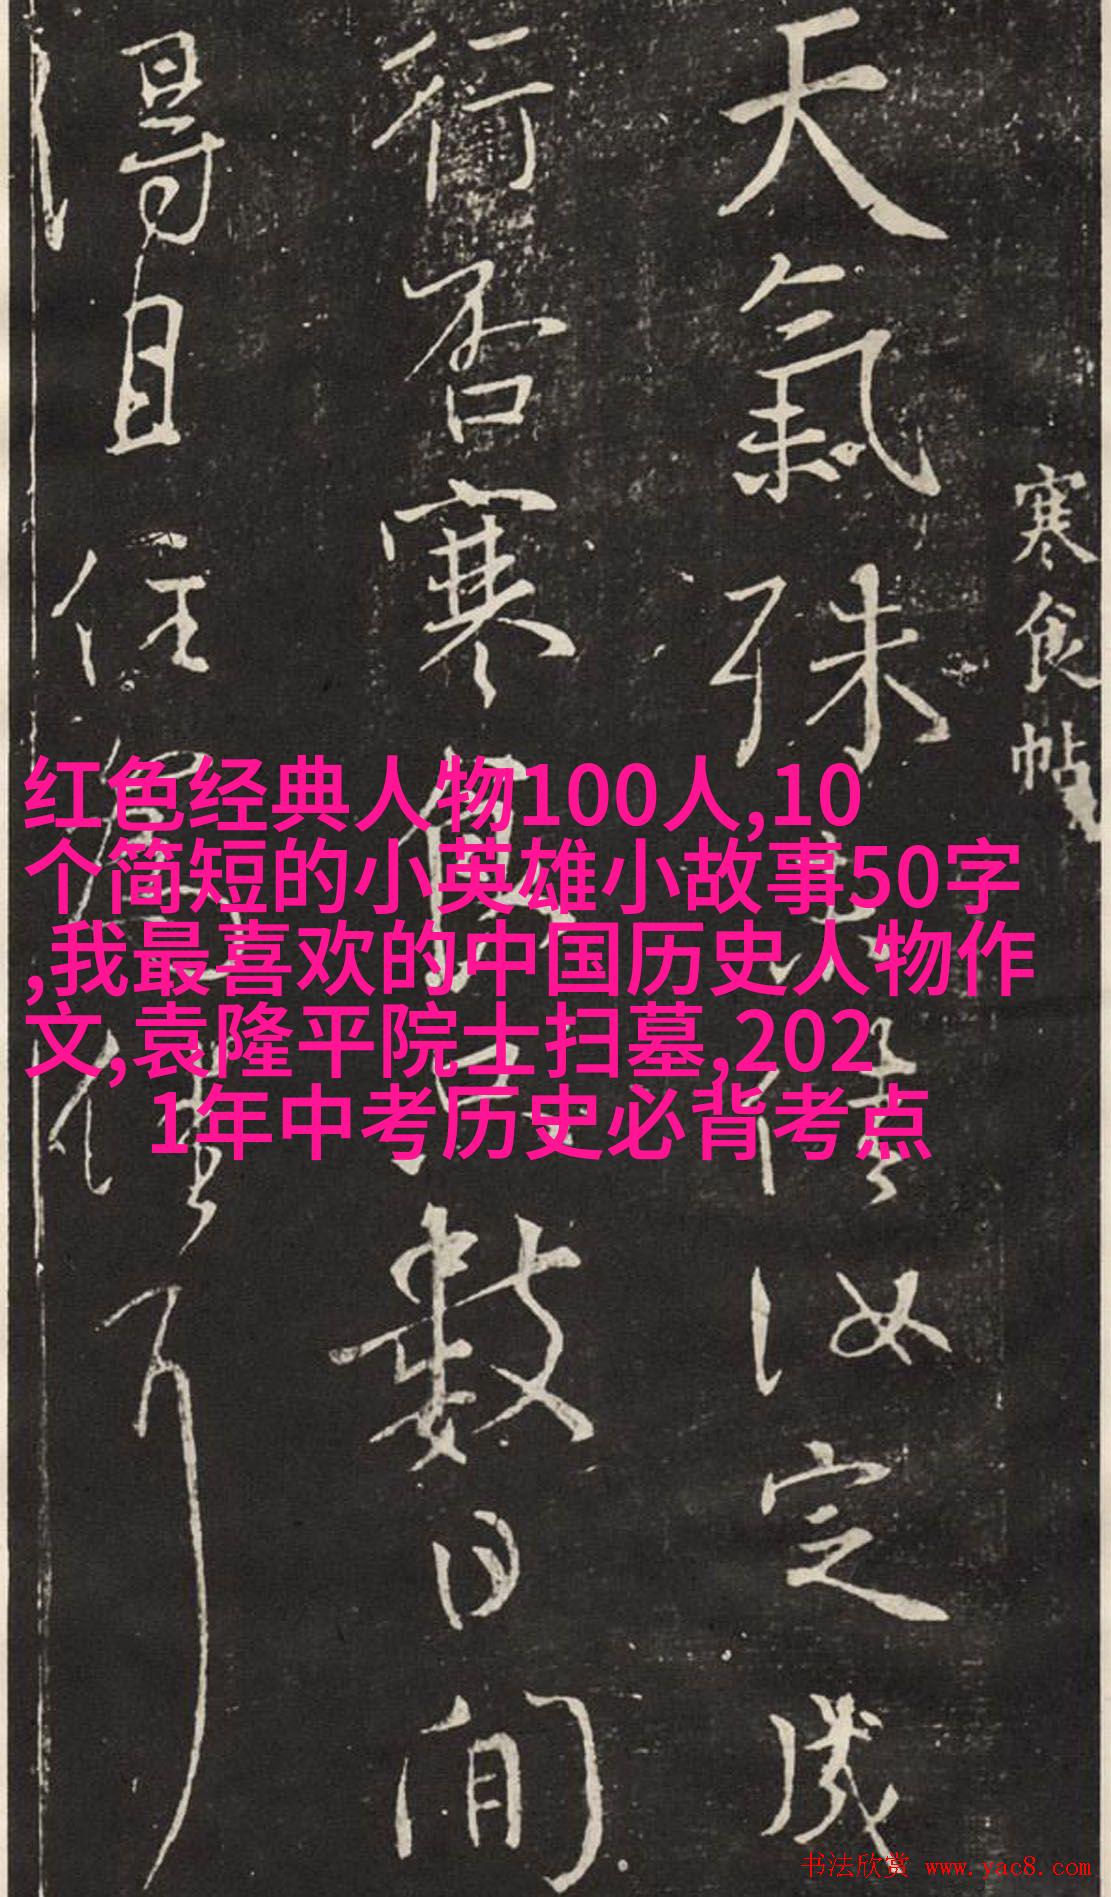 寒食帖
天氣殊未佳汝定成
行否寒食只數日間
得且住為佳耳
红色经典人物100人,10
个简短的小英雄小故事50字
,我最喜欢的中国历史人物作
文,袁隆平院士扫墓,202
1年中考历史必背考点
书法欣赏 www.yac8.com